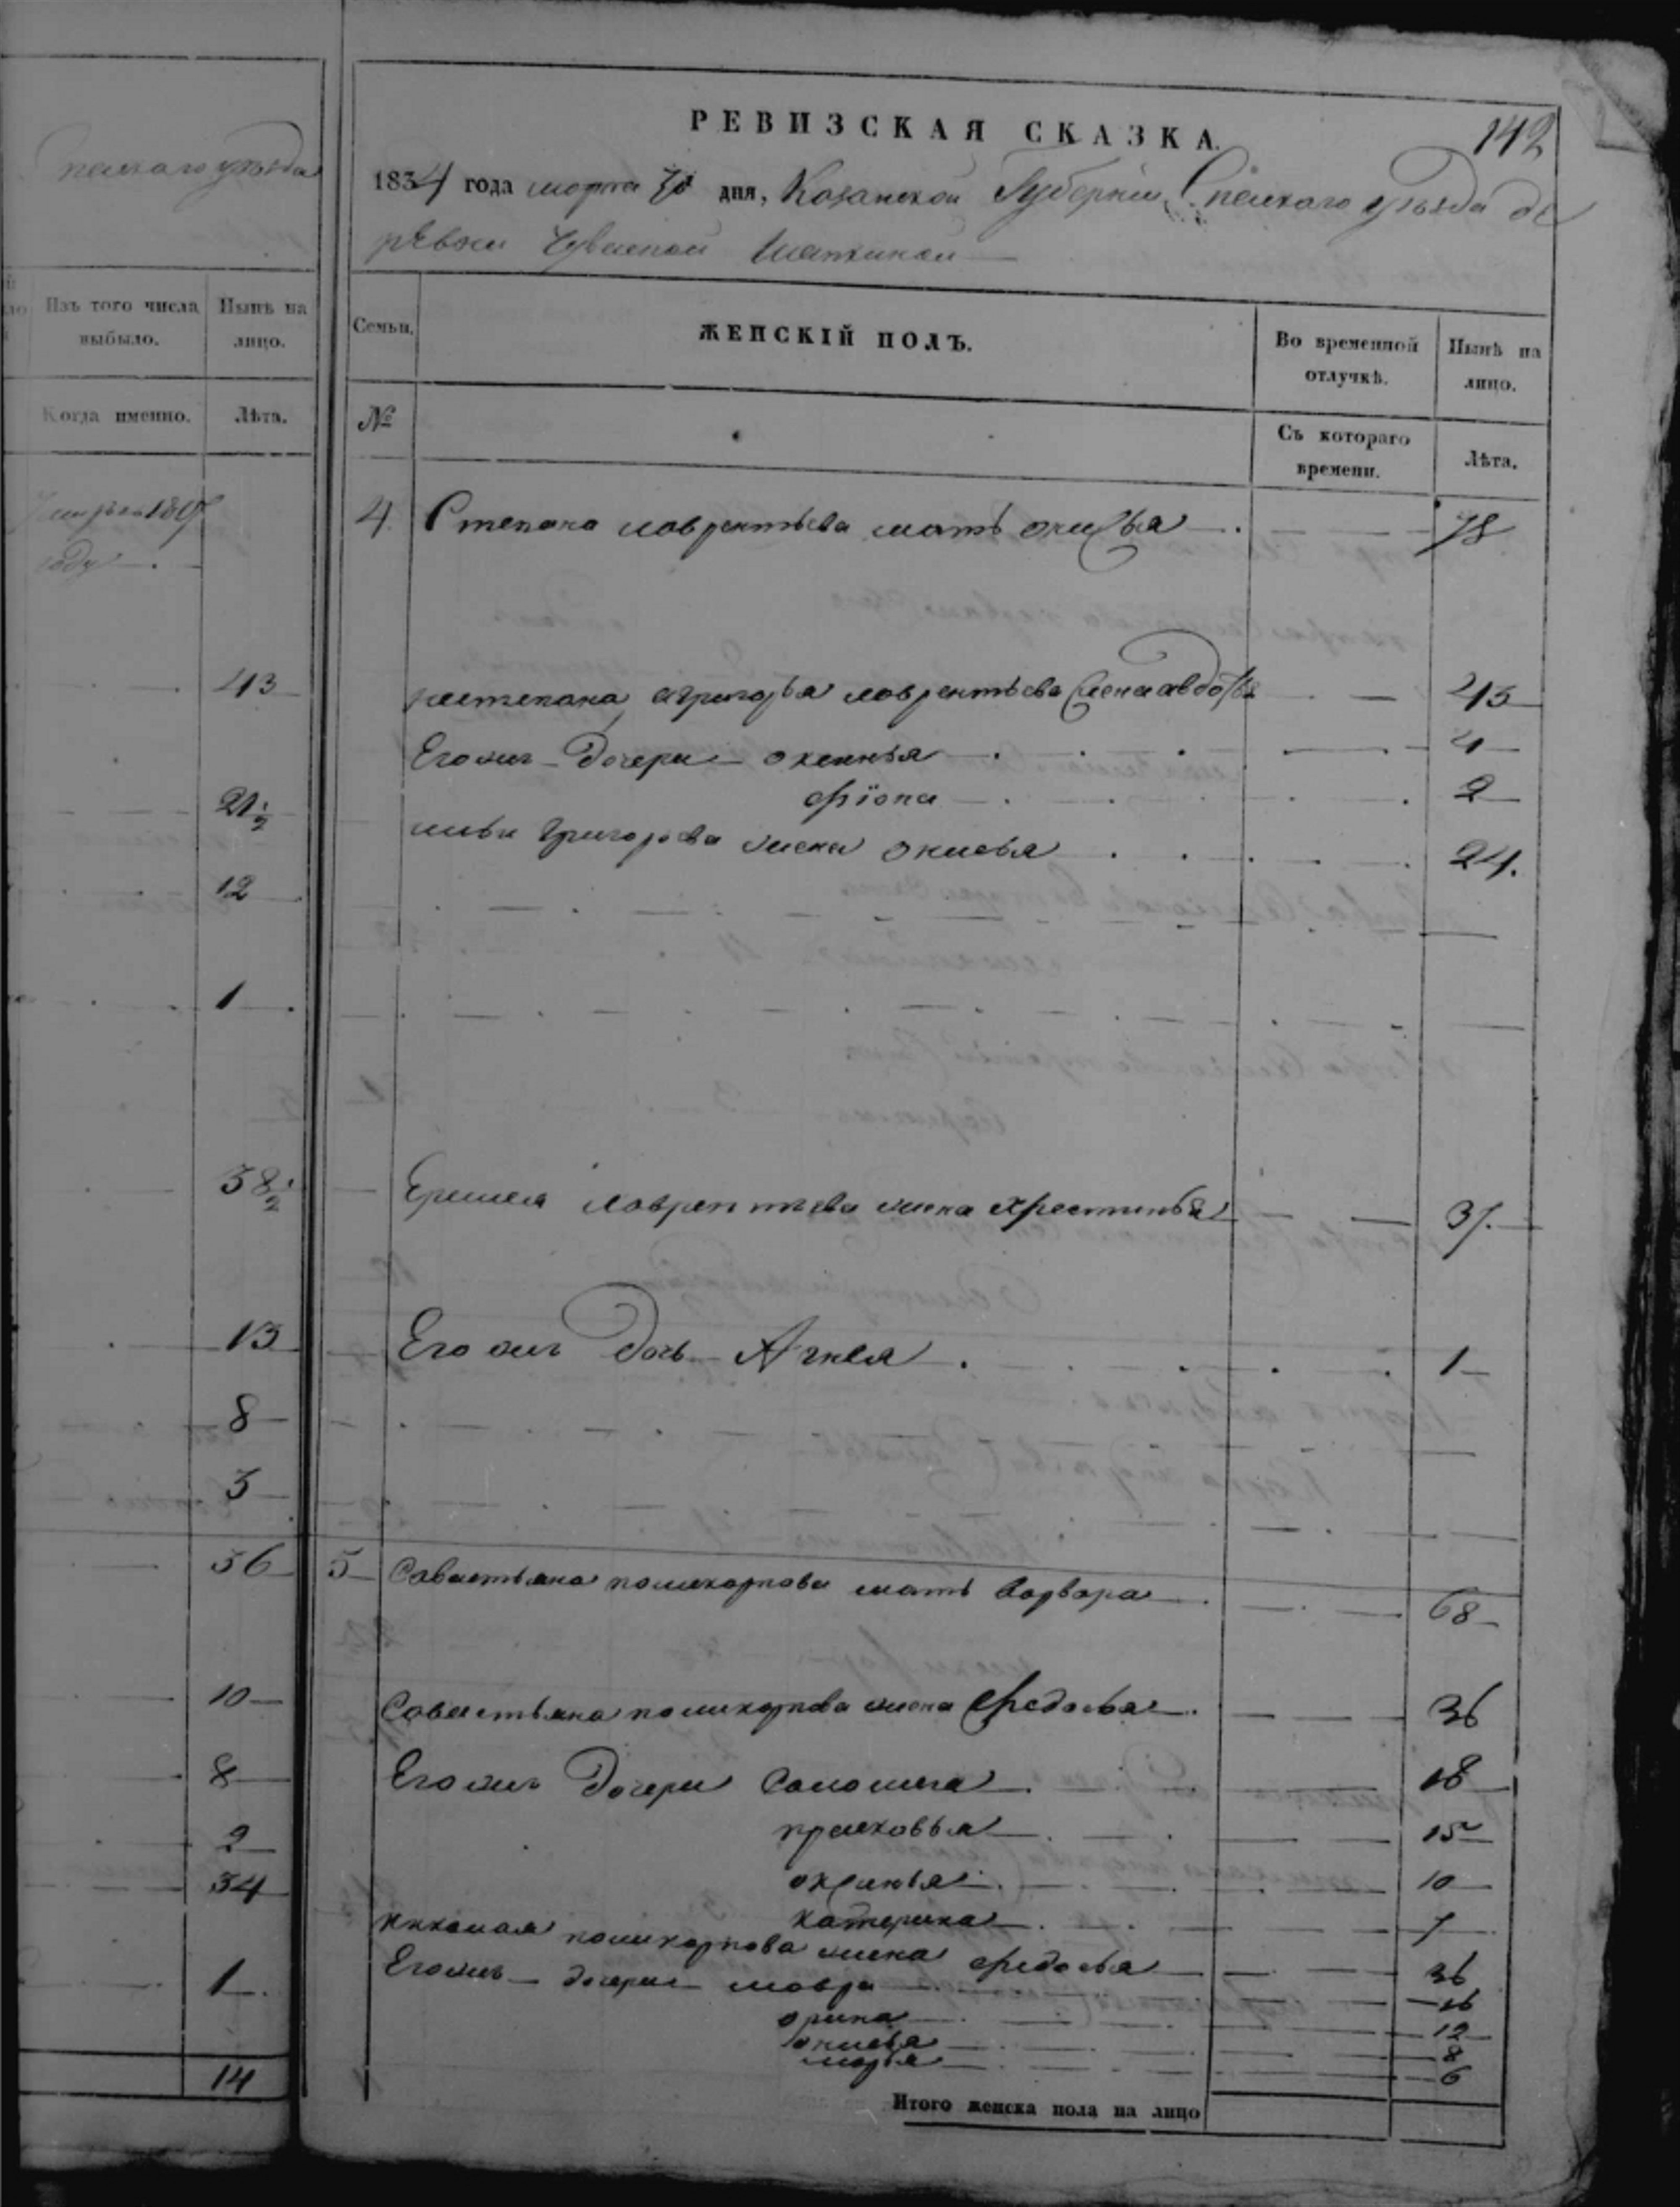 Спаскаго уѣзда
Изъ того числа выбыло.
Нынѣ на лицо.
Когда именно.
Лѣта.
1807
году
43
21½
12
1
38½
13
8
3
56
10
8
2
34
1
14
142
РЕВИЗСКАЯ СКАЗКА.
1834 года марта дня, Казанской Губерніи Спаскаго уѣзда де
ревни Чувашской
Семьи.
ЖЕНСКІЙ ПОЛЪ.
Во временной отлучкѣ.
Нынѣ на лицо.
№
Съ котораго времени.
Лѣта.
4. Степана Лаврентьева мать 78
Григорья Лаврентьева жена Авдотья 43
Его жъ дочери Оксинья 4
Фіона 2
Григорьева жена Онисья 24.
Лаврентьева жена Хрестинья 37.
Его жъ дочь Агнея 1
5 Савастьяна Поликарпова мать Варвара 68
Савастьяна Поликарпова жена Федосья 36
Его жъ дочери Саломея 18
Прасковья 15
Оксинья 10
Катерина 7
Николая Поликарпова жена Федосья 36
Его жъ дочери Мавра 16
Орина 12
Онисья 8
Марья 6
Итого женска пола на лицо